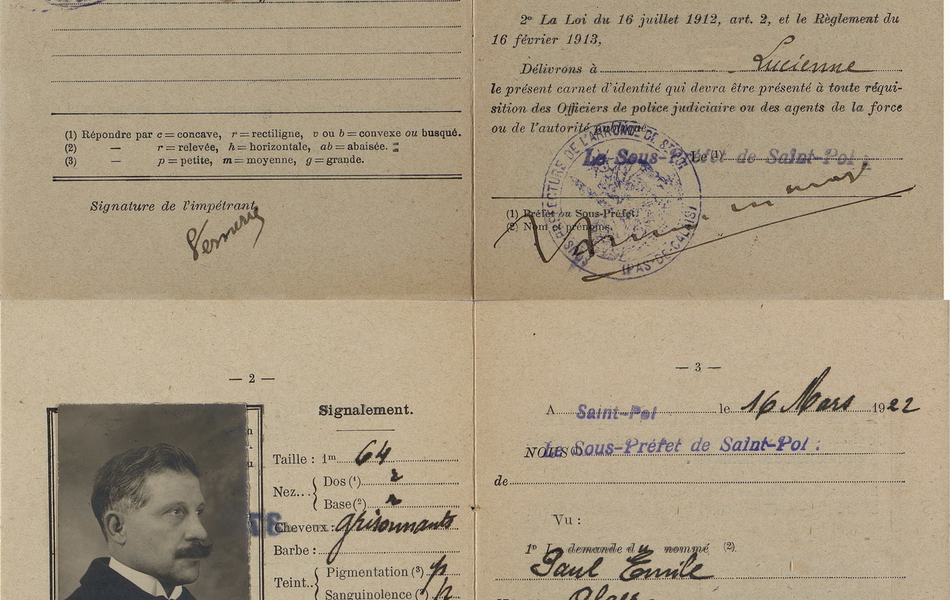 2º La Loi du 16 juillet 1912, art. 2, et le Règlement du
16 février 1913,
Délivrons à Lucienne
le présent carnet d'identité qui devra être présenté à toute réqui-
sition des Officiers de police judiciaire ou des agents de la force
ou de l'autorité publique.
Le Sous-Préfet de Saint-Pol :
Le (1)
(1) Préfet ou Sous-Préfet.
(2) Nom et prénoms.
SOUS-PRÉFECTURE DE L'ARRONDT DE ST POL
(PAS-DE-CALAIS)
(1) Répondre par c = concave, r = rectiligne, v ou b = convexe ou busqué.
(2) — r = relevée, h = horizontale, ab = abaisée.
(3) — p = petite, m = moyenne, g = grande.
Signature de l'impétrant,
— 2 —
Signalement.
Taille : 1m 64
Nez... Dos (1) r
Base (2) r
Cheveux : grisonnants
Barbe :
Teint... Pigmentation (3) p
Sanguinolence (3) p
— 3 —
A Saint-Pol le 16 Mars 1922
NOUS Le Sous-Préfet de Saint-Pol :
de
Vu :
1º La demande du nommé (2)
Paul Emile